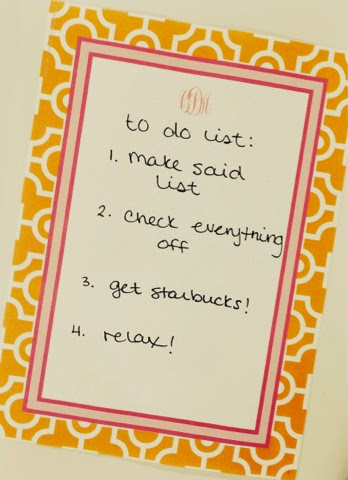 to do list:
1. make said
list
2. check everything
off
3. get starbucks!
4. relax!